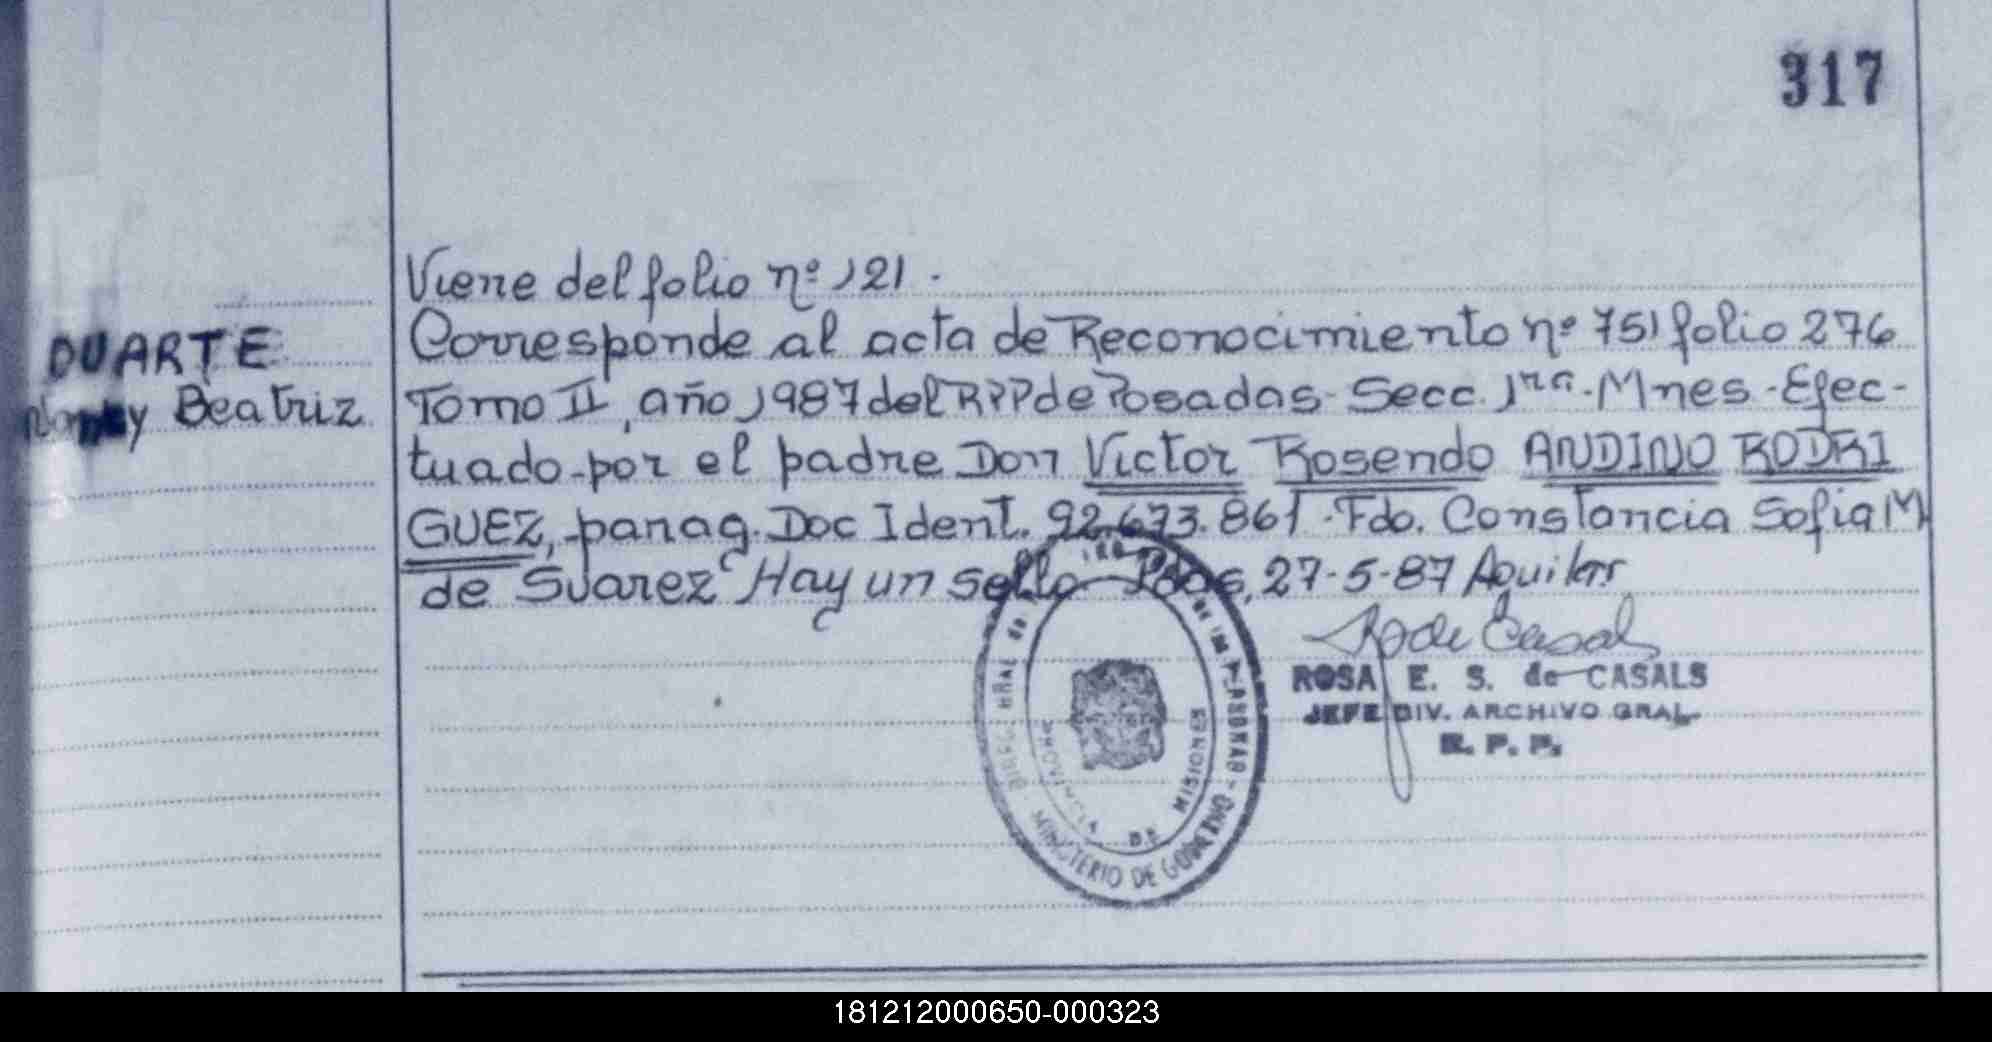 317
Viene del folio nº 121.
DUARTE
Beatriz
Corresponde al acta de Reconocimiento nº 751 folio 276
Tomo II, año 1987 del RPP de Posadas - Secc. 1ra. Mnes - Efec-
tuado por el padre Don Victor Rosendo ANDINO RODRI
GUEZ, parag. Doc Ident. 92.673.861 - Fdo. Constancia Sofia M
de Suarez Hay un sello Pdas, 27-5-87 Aquiler
R de Casals
ROSA E. S. de CASALS
JEFE DIV. ARCHIVO GRAL.
R. P. P.
PROVINCIA DE MISIONES
MINISTERIO DE GOBIERNO
181212000650-000323